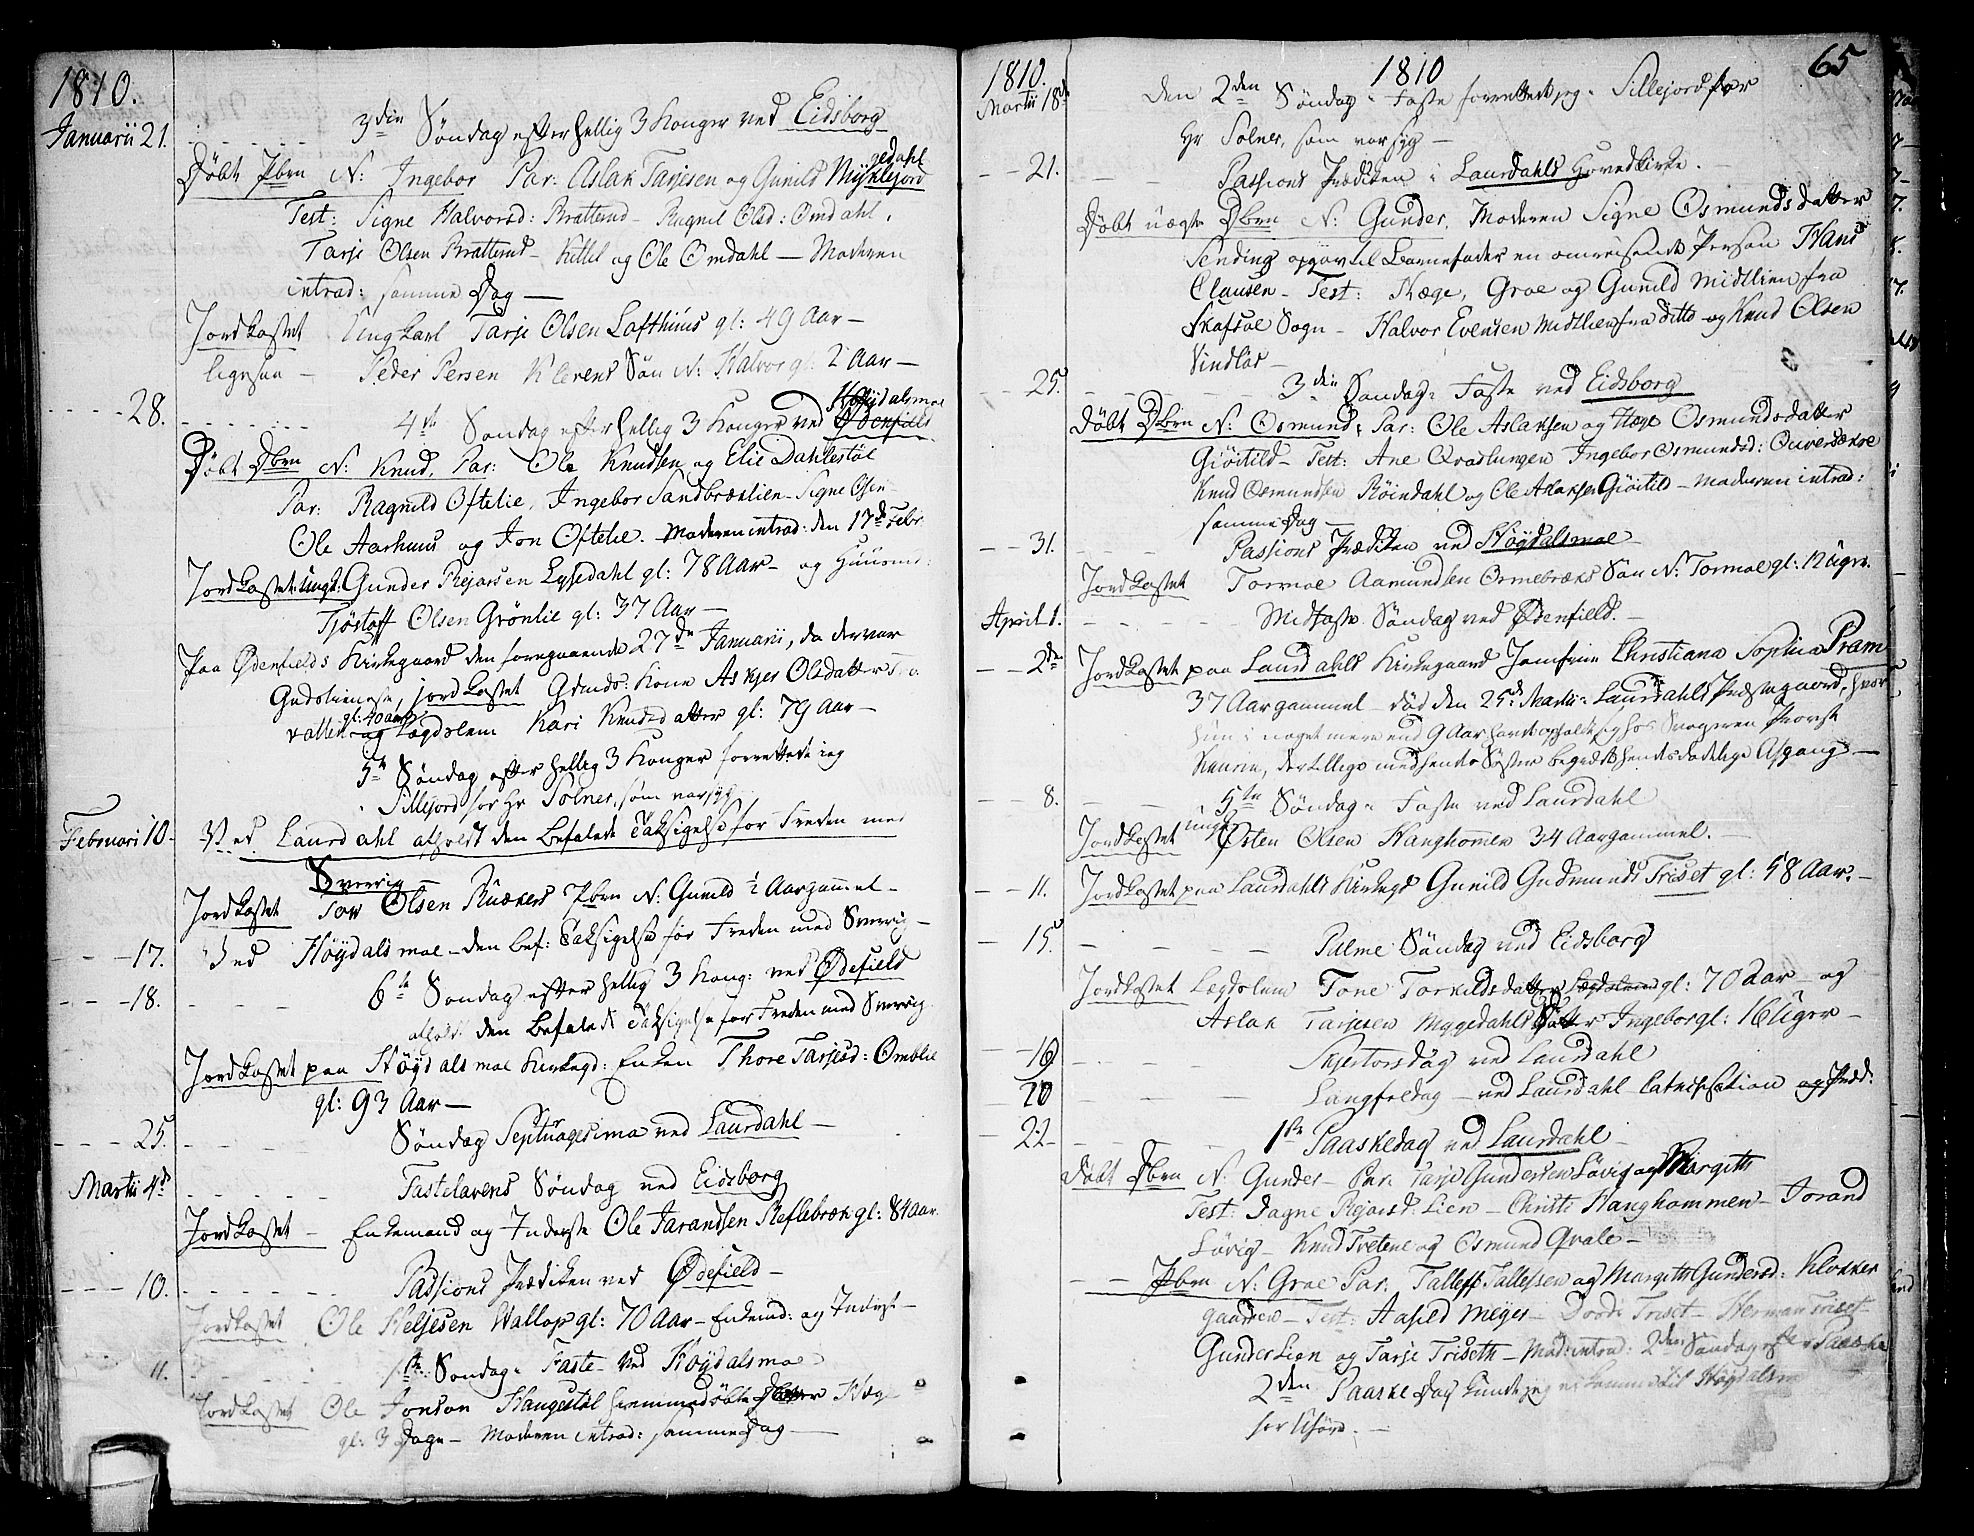 1810.
Januarii 21. 3die Søndag efter hellig 3 Konger ved Eidsborg
Døbt Pbrn N: Ingebor Par: Aslak Tarjesen og Gunild Mykle
gedahl
Test: Signe Halvorsd: Bratterud - Ragnil Olsd: Omdahl.
Tarje Olsen Bratterud - Kittil og Ole Omdahl - Moderen
introd: samme Dag -
Jordkastet Ungkarl Tarje Olsen Lofthuus gl: 49 Aar -
ligesaa - Peder Persen Klevens Søn N: Halvor gl: 2 Aar -
28. 4de Søndag efter hellig 3 Konger ved Høydalsmoe
Døbt Dbrn N: Knud, Par: Ole Knudsen og Elie Dahlestøl
Par: Ragnild Oftelie, Ingebor Sandbræklien - Signe
Ole Aarhuus og Jon Oftelie. Moderen introd: den 17de Febr.
Jordkastet ungk: Gunder Rejorsen Lysedahl gl: 78 Aar - og Huusm:
Tjøstoff Olsen Grønlie gl: 37 Aar -
Paa Ødenfields Kirkegaard den foregaaende 27de Januarii, da der var
Gudstieneste, jordkastet Gdmds: Kone Askjer Olsdatter
gl: 40 aar
og Lægdslem Kari Knudsdatter gl: 79 Aar -
5te Søndag efter hellig 3 Konger forrettede jeg
i Sillejord for Hr Sølner, som var syg
Februari 10. Ved Laurdahl afholdt den befalede Taksigelse for Freden med
Sverrig -
Jordkastet Tov Olsen Pbrn N: Gunild ½ Aar gammel -
17. Ved Høydalsmoe - den bef: Taksigelse for Freden med Sverrig -
18. 6te Søndag efter hellig 3 Kong: ved Ødefield
afholdt den befalede Taksigelse for Freden med Sverrig
Jordkastet paa Høydalsmoe Kirkegd: Enken Thore Tarjesd: Omblie
gl: 93 Aar -
25. Søndag Septuagesima ved Laurdahl -
Martii 4de Fastelavens Søndag ved Eidsborg
Jordkastet - Enkemand og Inderste Ole Tarandsen Reflebræk gl: 84 Aar.
10. Passions Prædiken ved Ødefield -
Jordkastet Ole Helgesen Vallop gl: 70 Aar - Enkemd: og Inderst -
11. 1ste Søndag i Faste ved Høydalsmoe
Jordkastet Ole Jonson Haugestøl hiemmedøbte
gl: 3 Dage - Moderen introd: samme Dag -
1810.
1810
65
Martii 18de Den 2den Søndag i Faste forrettede jeg i Sillejord for
Hr Sølner, som var syg -
21. Passions Prædiken i Laurdahls Hovedkirke.
Døbt uægte Dbrn N: Gunder, Moderen Signe Osmundsdatter
Sending opgav til Barnefader en omreisende Person Hans
Clausen - Test: Hæge, Groe og Gunild Midtlien fra
Skafsae Sogn - Halvor Evensen Midtlien fra ditto og Knud Olsen
Vindlas -
25. 3die Søndag i Faste ved Eidsborg
Døbt Dbrn N: Osmund, Par: Ole Aslaksen og Hæge Osmundsdatter
Giøitild - Test: Ane Ingebor Osmundsd:
Knud Osmundsen Røindahl og Ole Aslaksen Giøitild - Moderen introd:
samme Dag -
31. Passions Prædiken ved Høydalsmoe
Jordkastet Tormoe Aamundsen Ormebræks Søn N: Tormoe gl:
April 1. Midfaste Søndag ved Ødenfield. -
2den Jordkastet paa Laurdahls Kirkegaard Jomfrue Christiana Sophia Pram
37 Aar gammel - død den 25de Martii i Laurdahls Præstegaard, hvor
hun i noget mere end 9 Aar havde opholdt sig hos Svogeren Provst
der tillige med hendes Søster begræd hendes dødelige Afgang -
8. 5te Søndag i Faste ved Laurdahl
Jordkastet ungk: Østen Olsen Haughommen 34 Aar gammel. -
11. Jordkastet paa Laurdahls Kirkegd Gunild Gudmunds Triset gl: 58 Aar. -
15. Palme Søndag ved Eidsborg
Jordkastet Lægdslem Tone Torkildsdatter gl: 70 Aar - og
Aslak Tarjesen Myggedahls Datter Ingebor gl: 16 Uger -
19 Skjertorsdag ved Laurdahl
20 Langfredag - ved Laurdahl Catechisation og Præd:
22 1ste Paaskedag ved Laurdahl -
Døbt Dbrn N: Gunder - Par: Tarje Gundersen Løvig og Margith
Test: Dagne Rejorsd: Lien - Christi Haughommen - Jorand
Løvig - Knud Tvetene og Osmund Qvale -
Pbrn N: Groe Par: Talleff Tallefsen og Margith Gundersd: Klokker
gaarden - Test: Aasild Meyer - Dordi Triset - Herman Triset
Gunder Lien og Tarje Triseth - Mod: introd: 2den Søndag efter Paaske
2den Paaske Dag kunde jeg ei komme til Høydalsm
for Uføre. -